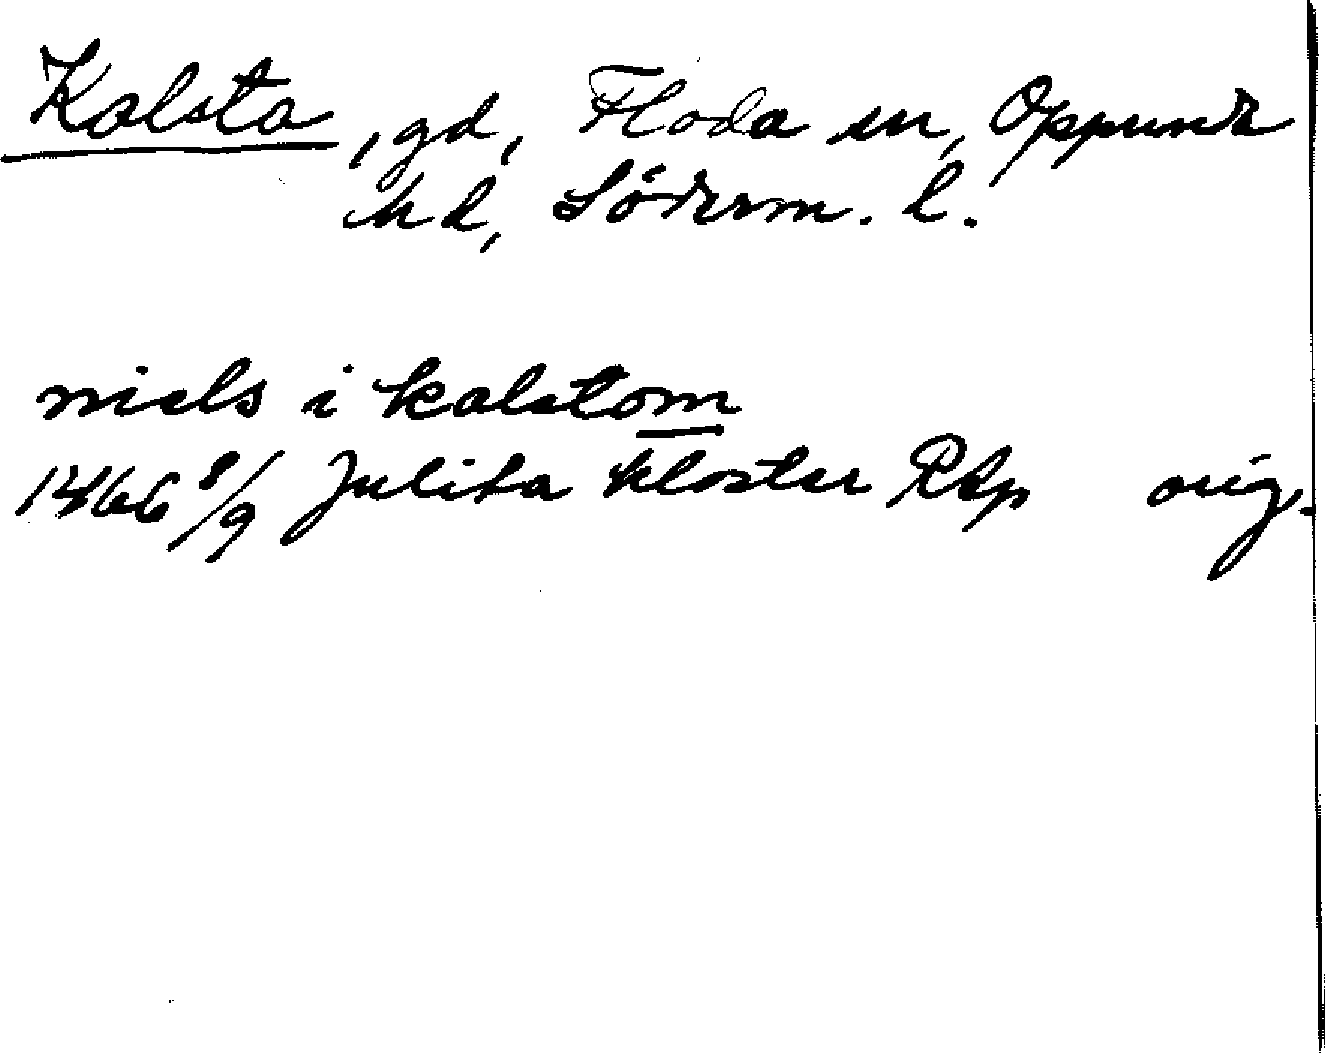 Kalsta, gd, Floda sn, Oppunda
hd, Söderm. l.
niels i kalstom
1466 8/9 Julita kloster Rtp orig.